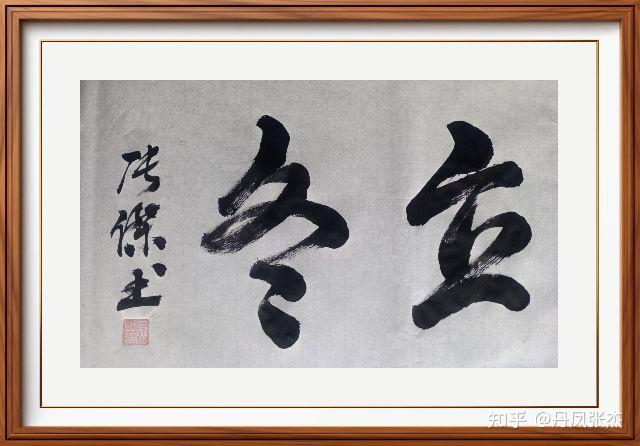 立冬
张傑书
知乎 @丹凤张杰